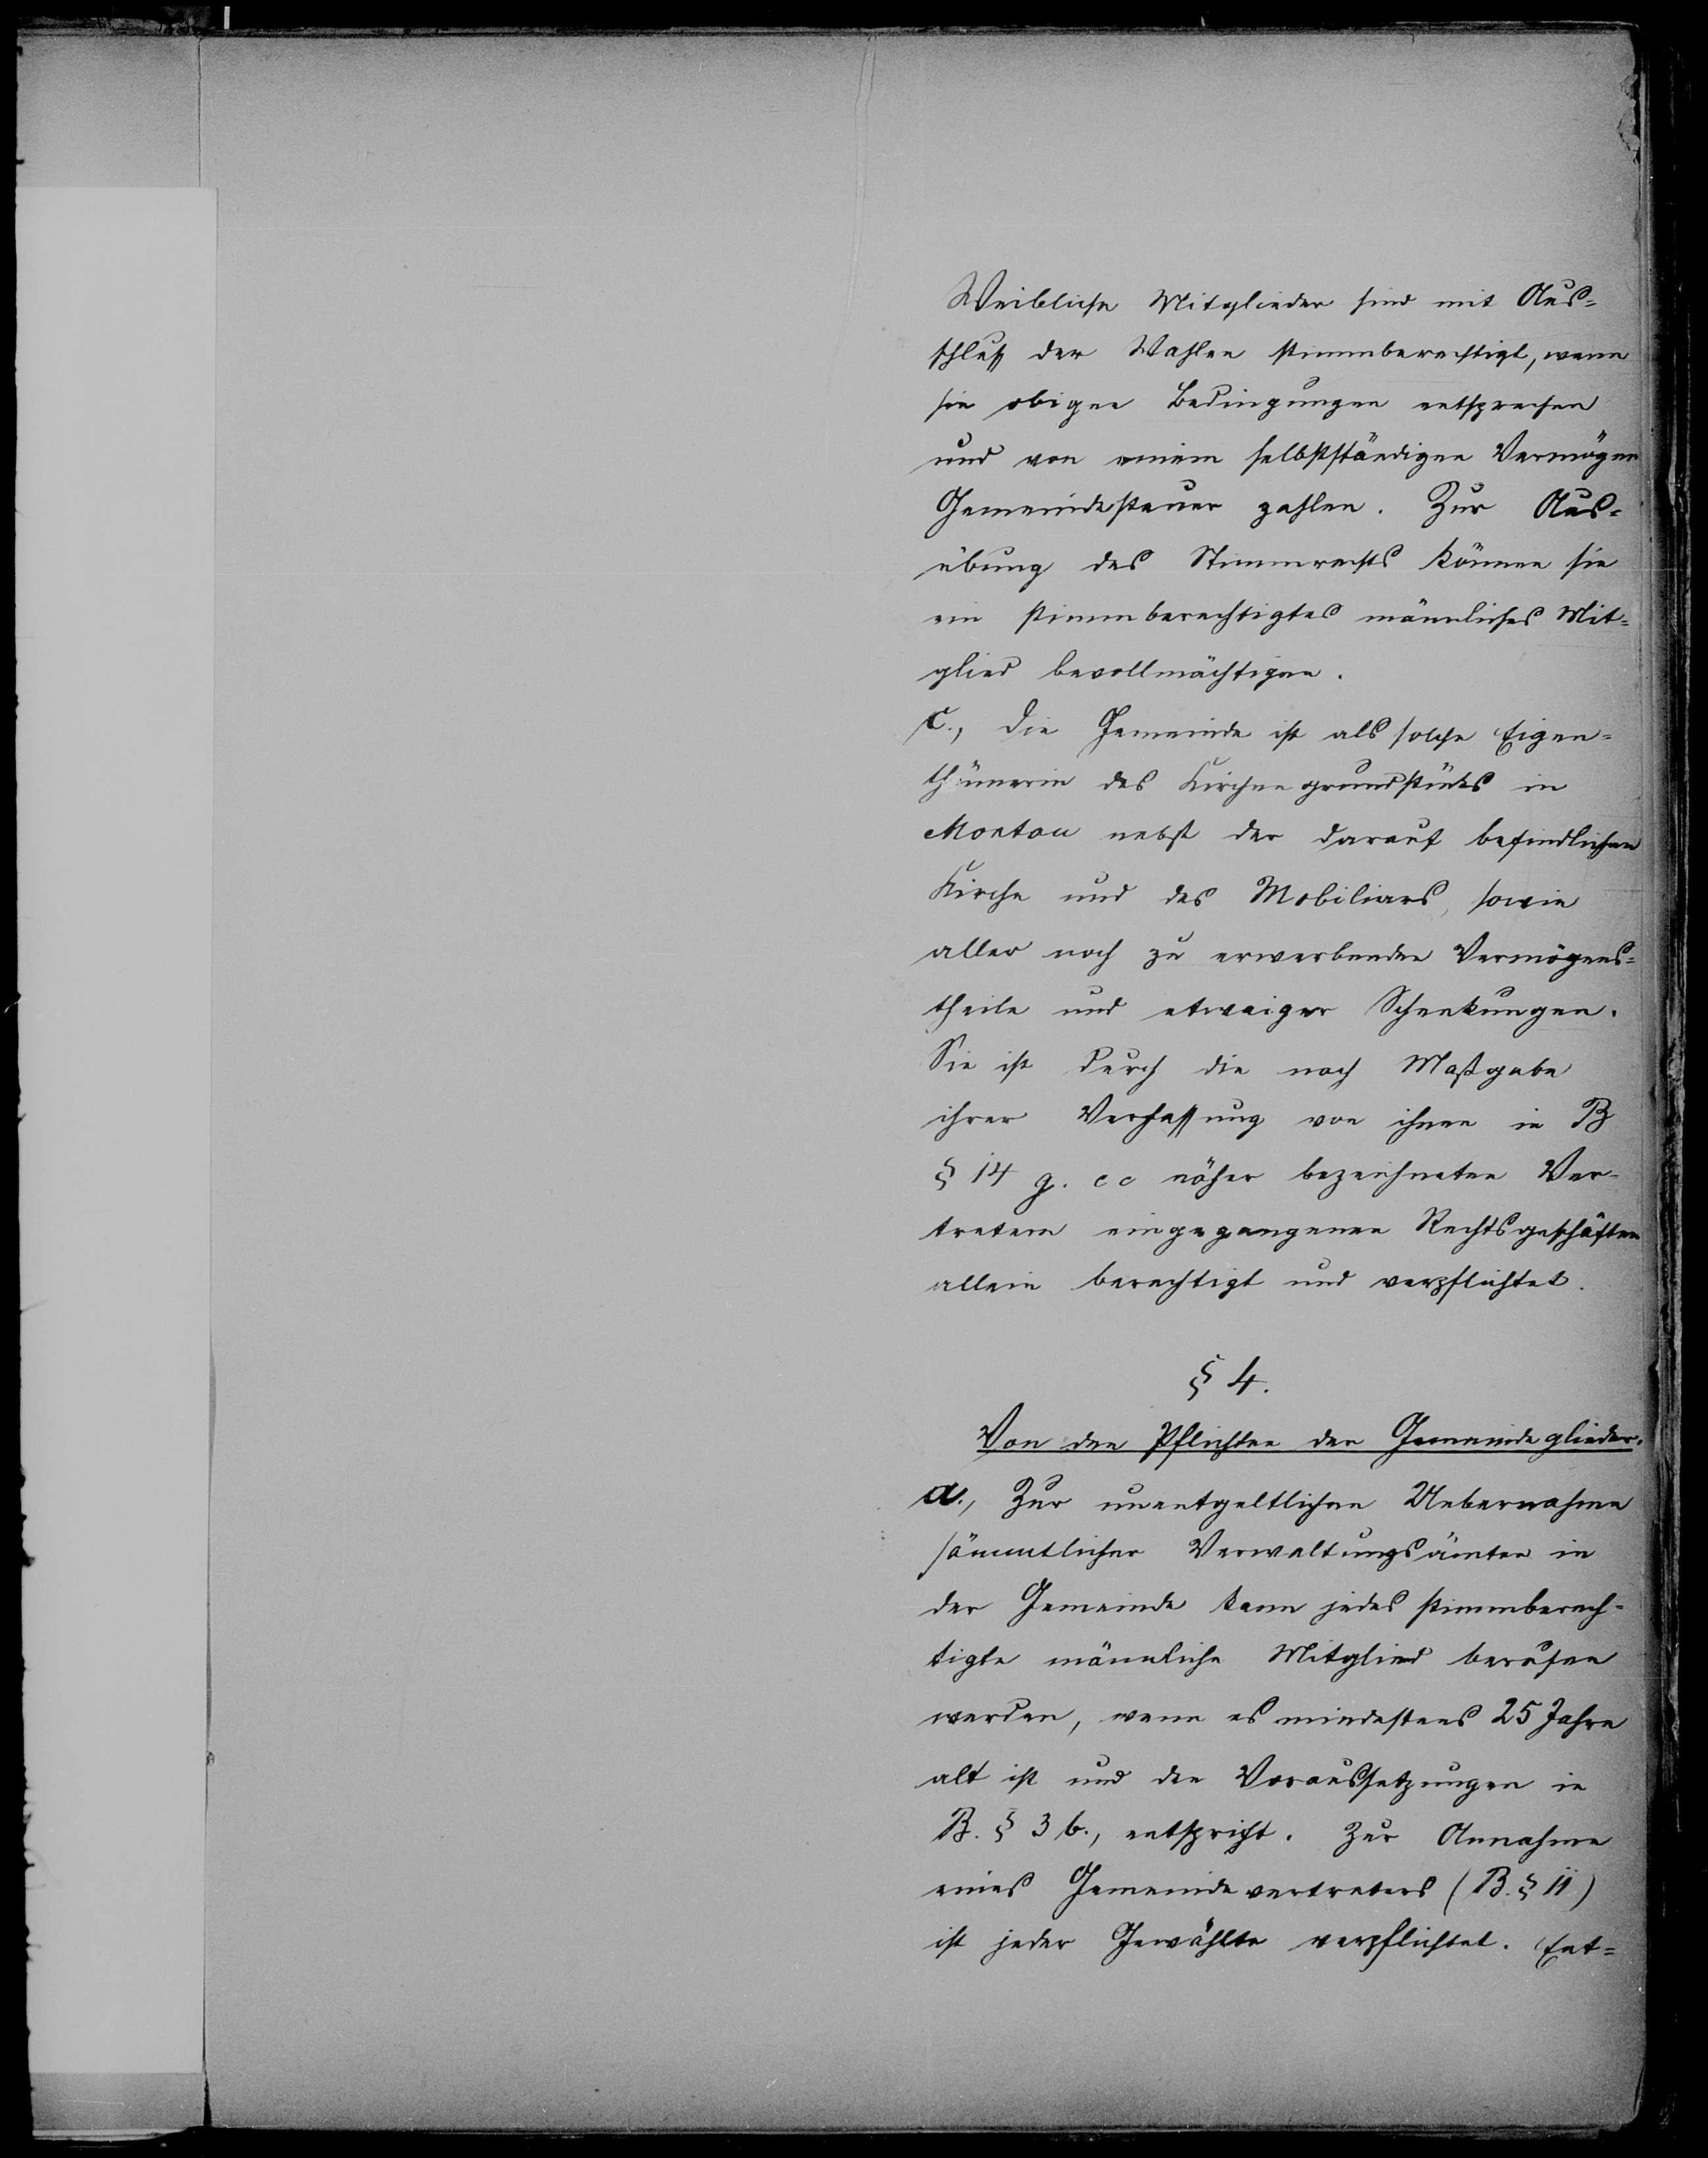 Weibliche Mitglieder sind mit Aus=
schluß der Wahlen stimmberechtigt, wenn
sie obigen Bedingungen entsprechen
und von einem selbstständigen Vermögen
Gemeindesteuer zahlen. Zur Aus=
übung des Stimmrechts können sie
ein stimmberechtigtes männliches Mit=
glied bevollmächtigen.
C., Die Gemeinde ist als solche Eigen=
thümerin des Kirchengrundstücks in
Montau nebst der darauf befindlichen
Kirche und des Mobiliars, sowie
aller noch zu erwerbenden Vermögens=
theile und etwaiger Schenkungen.
Sie ist durch die nach Maßgabe
ihrer Verfassung von ihnen in B
§ 14 g. cc näher bezeichneten Ver-
tretern eingegangenen Rechtsgeschäften
allein berechtigt und verpflichtet.
§ 4.
Von den Pflichten der Gemeindeglieder.
a., Zur unentgeltlichen Uebernahme
sämmtlicher Verwaltungsämter in
der Gemeinde kann jedes stimmberech-
tigte männliche Mitglied berufen
werden, wenn es mindestens 25 Jahre
alt ist und den Voraussetzungen in
B. § 3 b., entspricht. Zur Annahme
eines Gemeindevertreters (B. § 11)
ist jeder Gewählte verpflichtet. Ent=